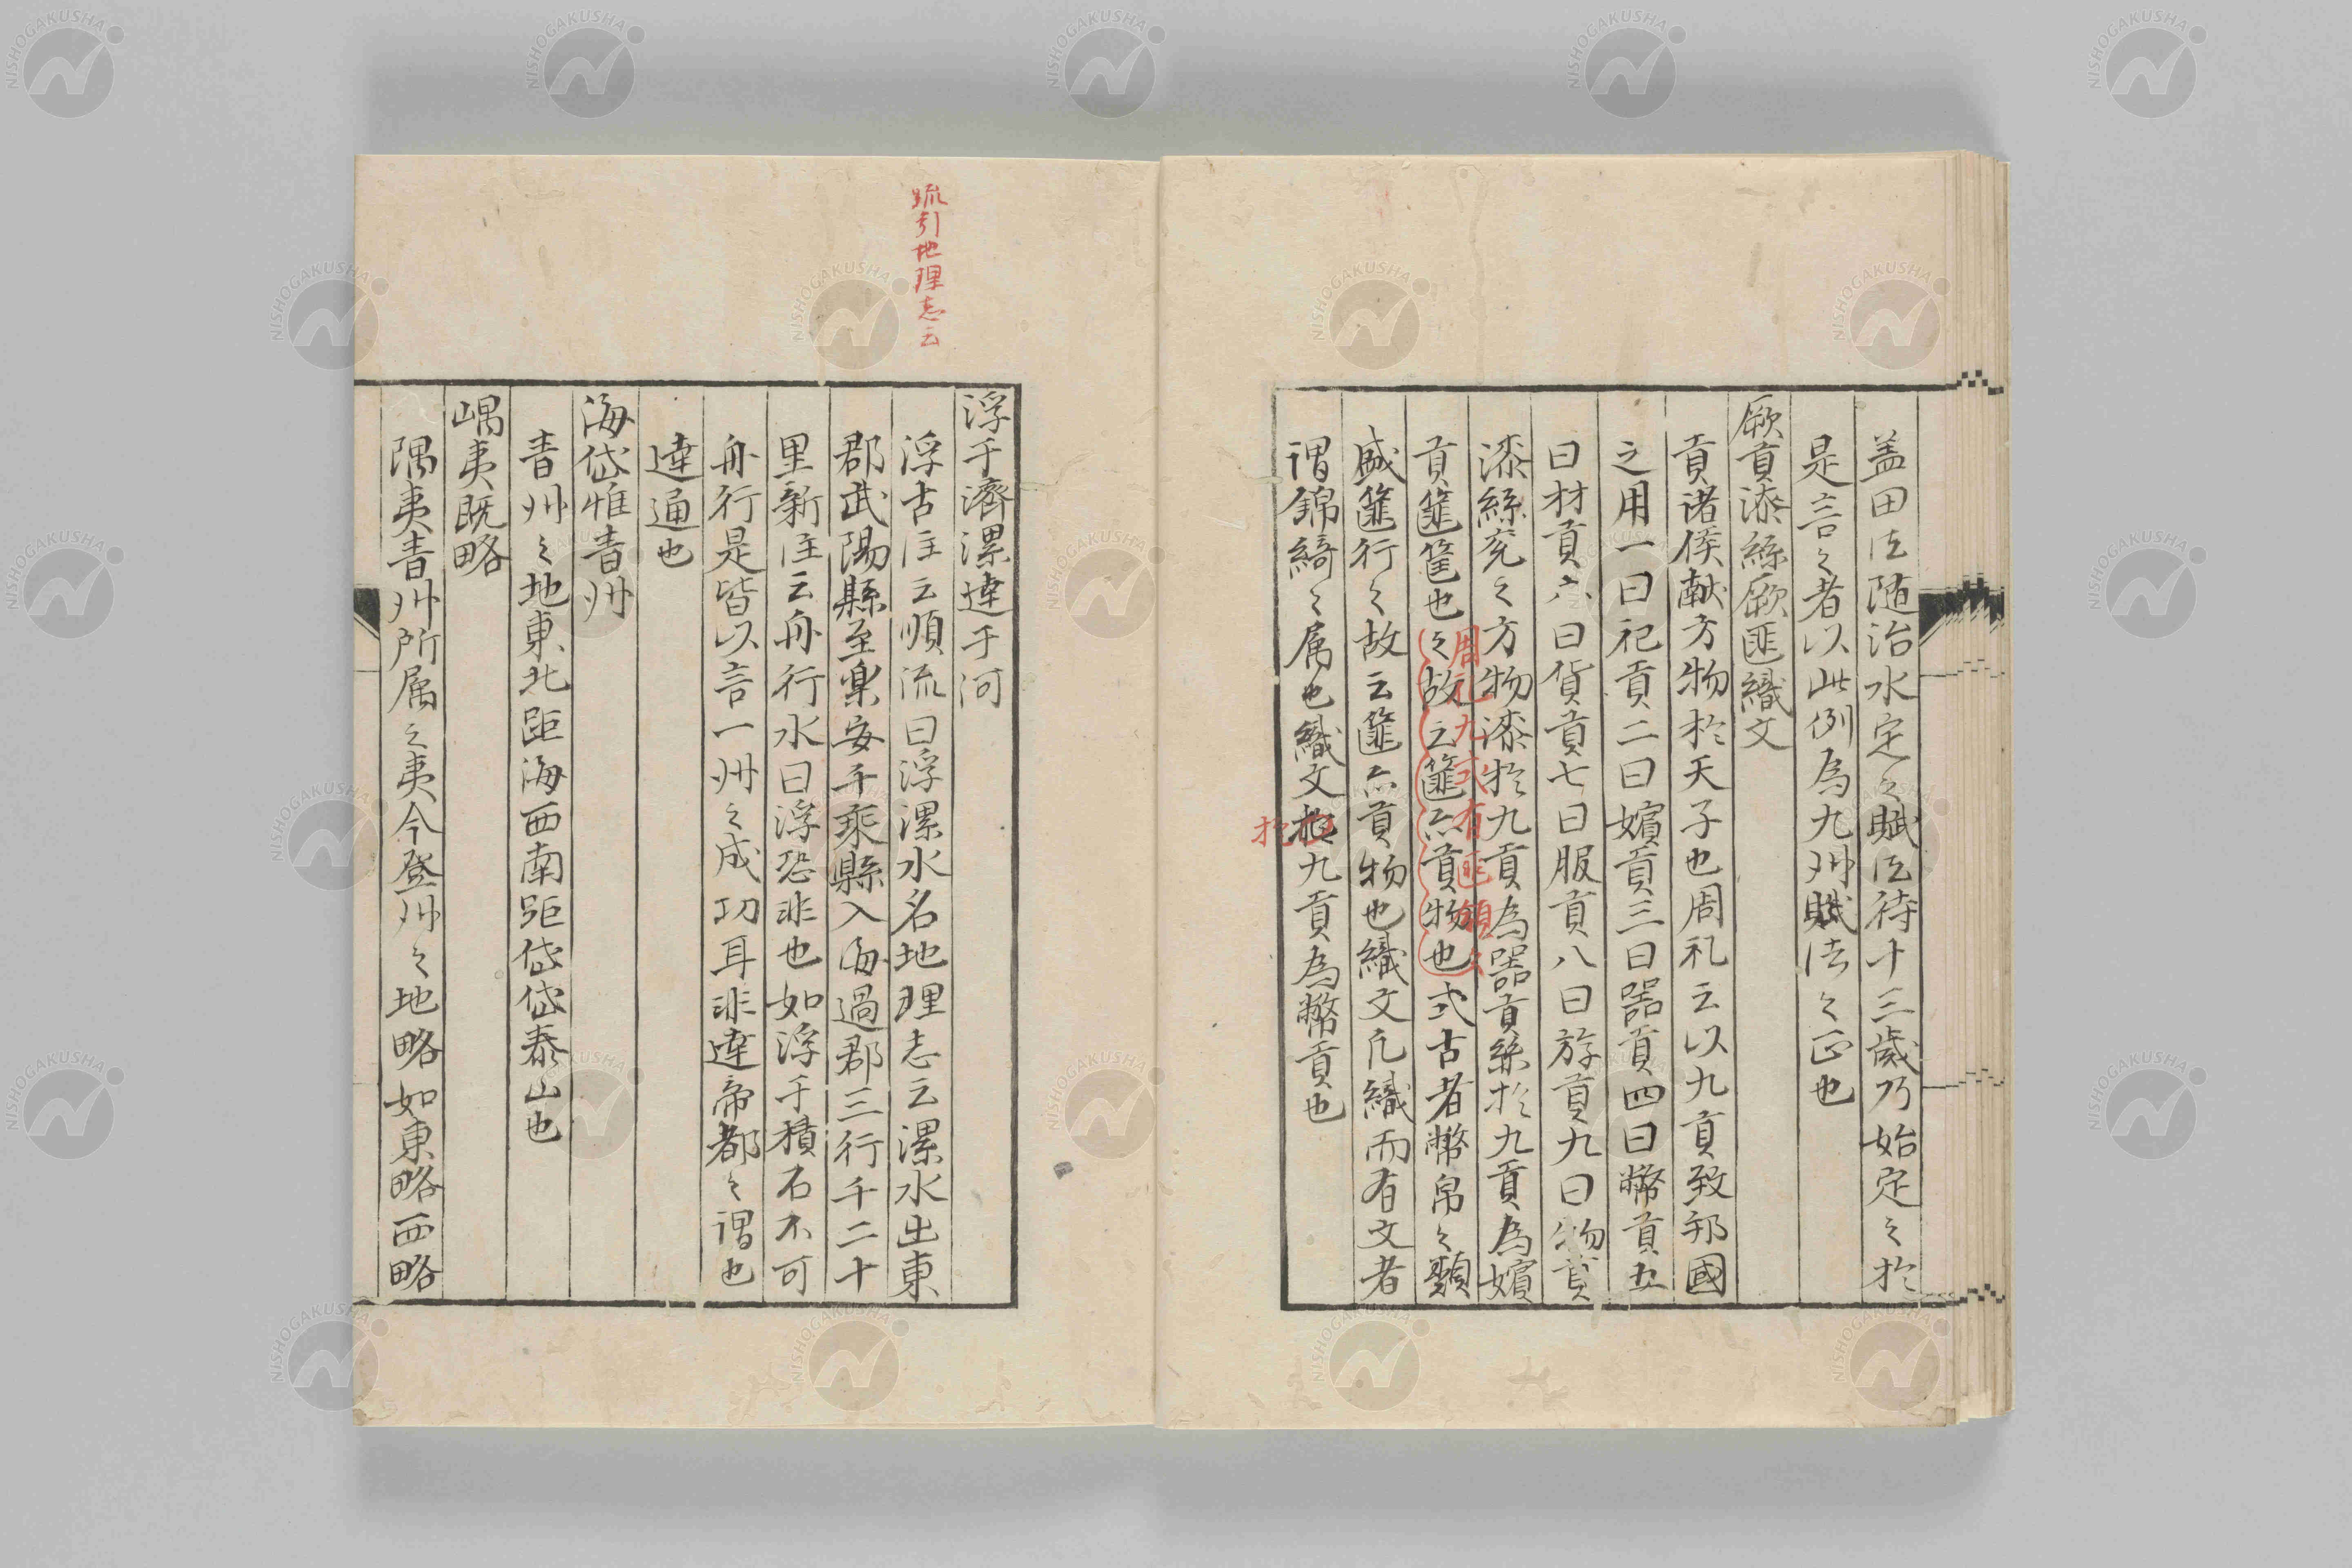 盖田法随治水定之賦法待十三歳乃始定之於
是言之者以此例為九州賦法之正也
厥貢漆絲厥匪織文
貢诸侯献方物於天子也周礼云以九貢致邦國
之用一曰祀貢二曰嬪貢三曰器貢四曰幣貢五
曰材貢六曰貨貢七曰服貢八曰斿貢九曰物貢
漆絲兖之方物漆於九貢為器貢絲於九貢為嬪
周礼九式有匪頒之
貢篚筐也之故云篚亦貢物也式古者幣帛之類
盛篚行之故云篚亦貢物也織文凡織而有文者
謂錦綺之属也織文於九貢為幣貢也
於
疏引地理志云
浮于濟漯達于河
浮古注云順流曰浮漯水名地理志云漯水出東
郡武陽縣至楽安千乘縣入海過郡三行千二十
里新注云舟行水曰浮恐非也如浮于積石不可
舟行是皆以言一州之成功耳非達帝都之謂也
達通也
海岱惟青州
青州之地東北距海西南距岱岱泰山也
嵎夷既略
隅夷青州所属之夷今登州之地略如東略西略
NISHOGAKUSHA